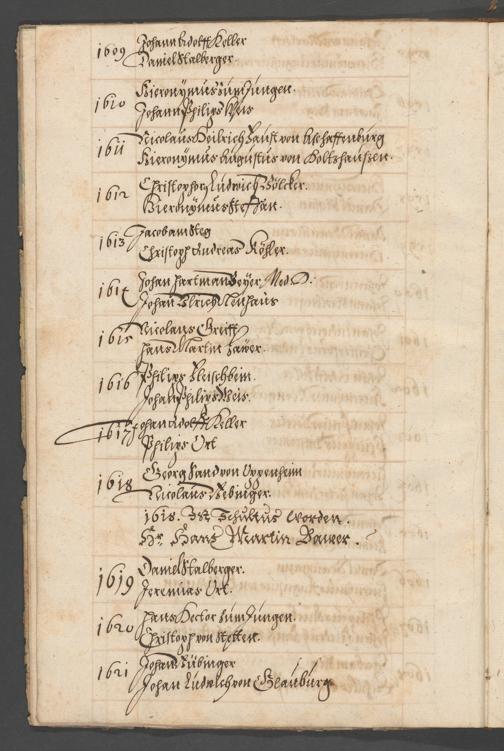 1609 Johann Adolff Keller
Daniel Stalberger
1610 Hieronymus zum Jungen.
Johann Philips Weis
1611 Nicolaus Heilrich Faust von Aschaffenburg
Hieronymus Augustus von Holtzhausen.
1612 Christophorus Ludwich Völcker.
Hieronymus Steffan.
1613 Jacob am Steg
Christoph Andreas Köhler.
1614 Johan Hartman Beyer Med. D.
Johan Ulrich Neuhaus
1615 Nicolaus Greiff
Hans Martin Bawer.
1616 Philips Fleischbein.
Johan Philips Weis.
1617 Johan Adolff Keller
Philips Ort
1618 Georg Sand von Oppenheim
Nicolaus Rebinger.
1618. Ist Schultus worden.
Hr. Hans Martin Bawer.
1619 Daniel Stalberger.
Jeremias Ort.
1620 Hans Hector zum Jungen.
Christoph von Stetten.
1621 Johan Rübinger
Johan Ludwich von Glauburg